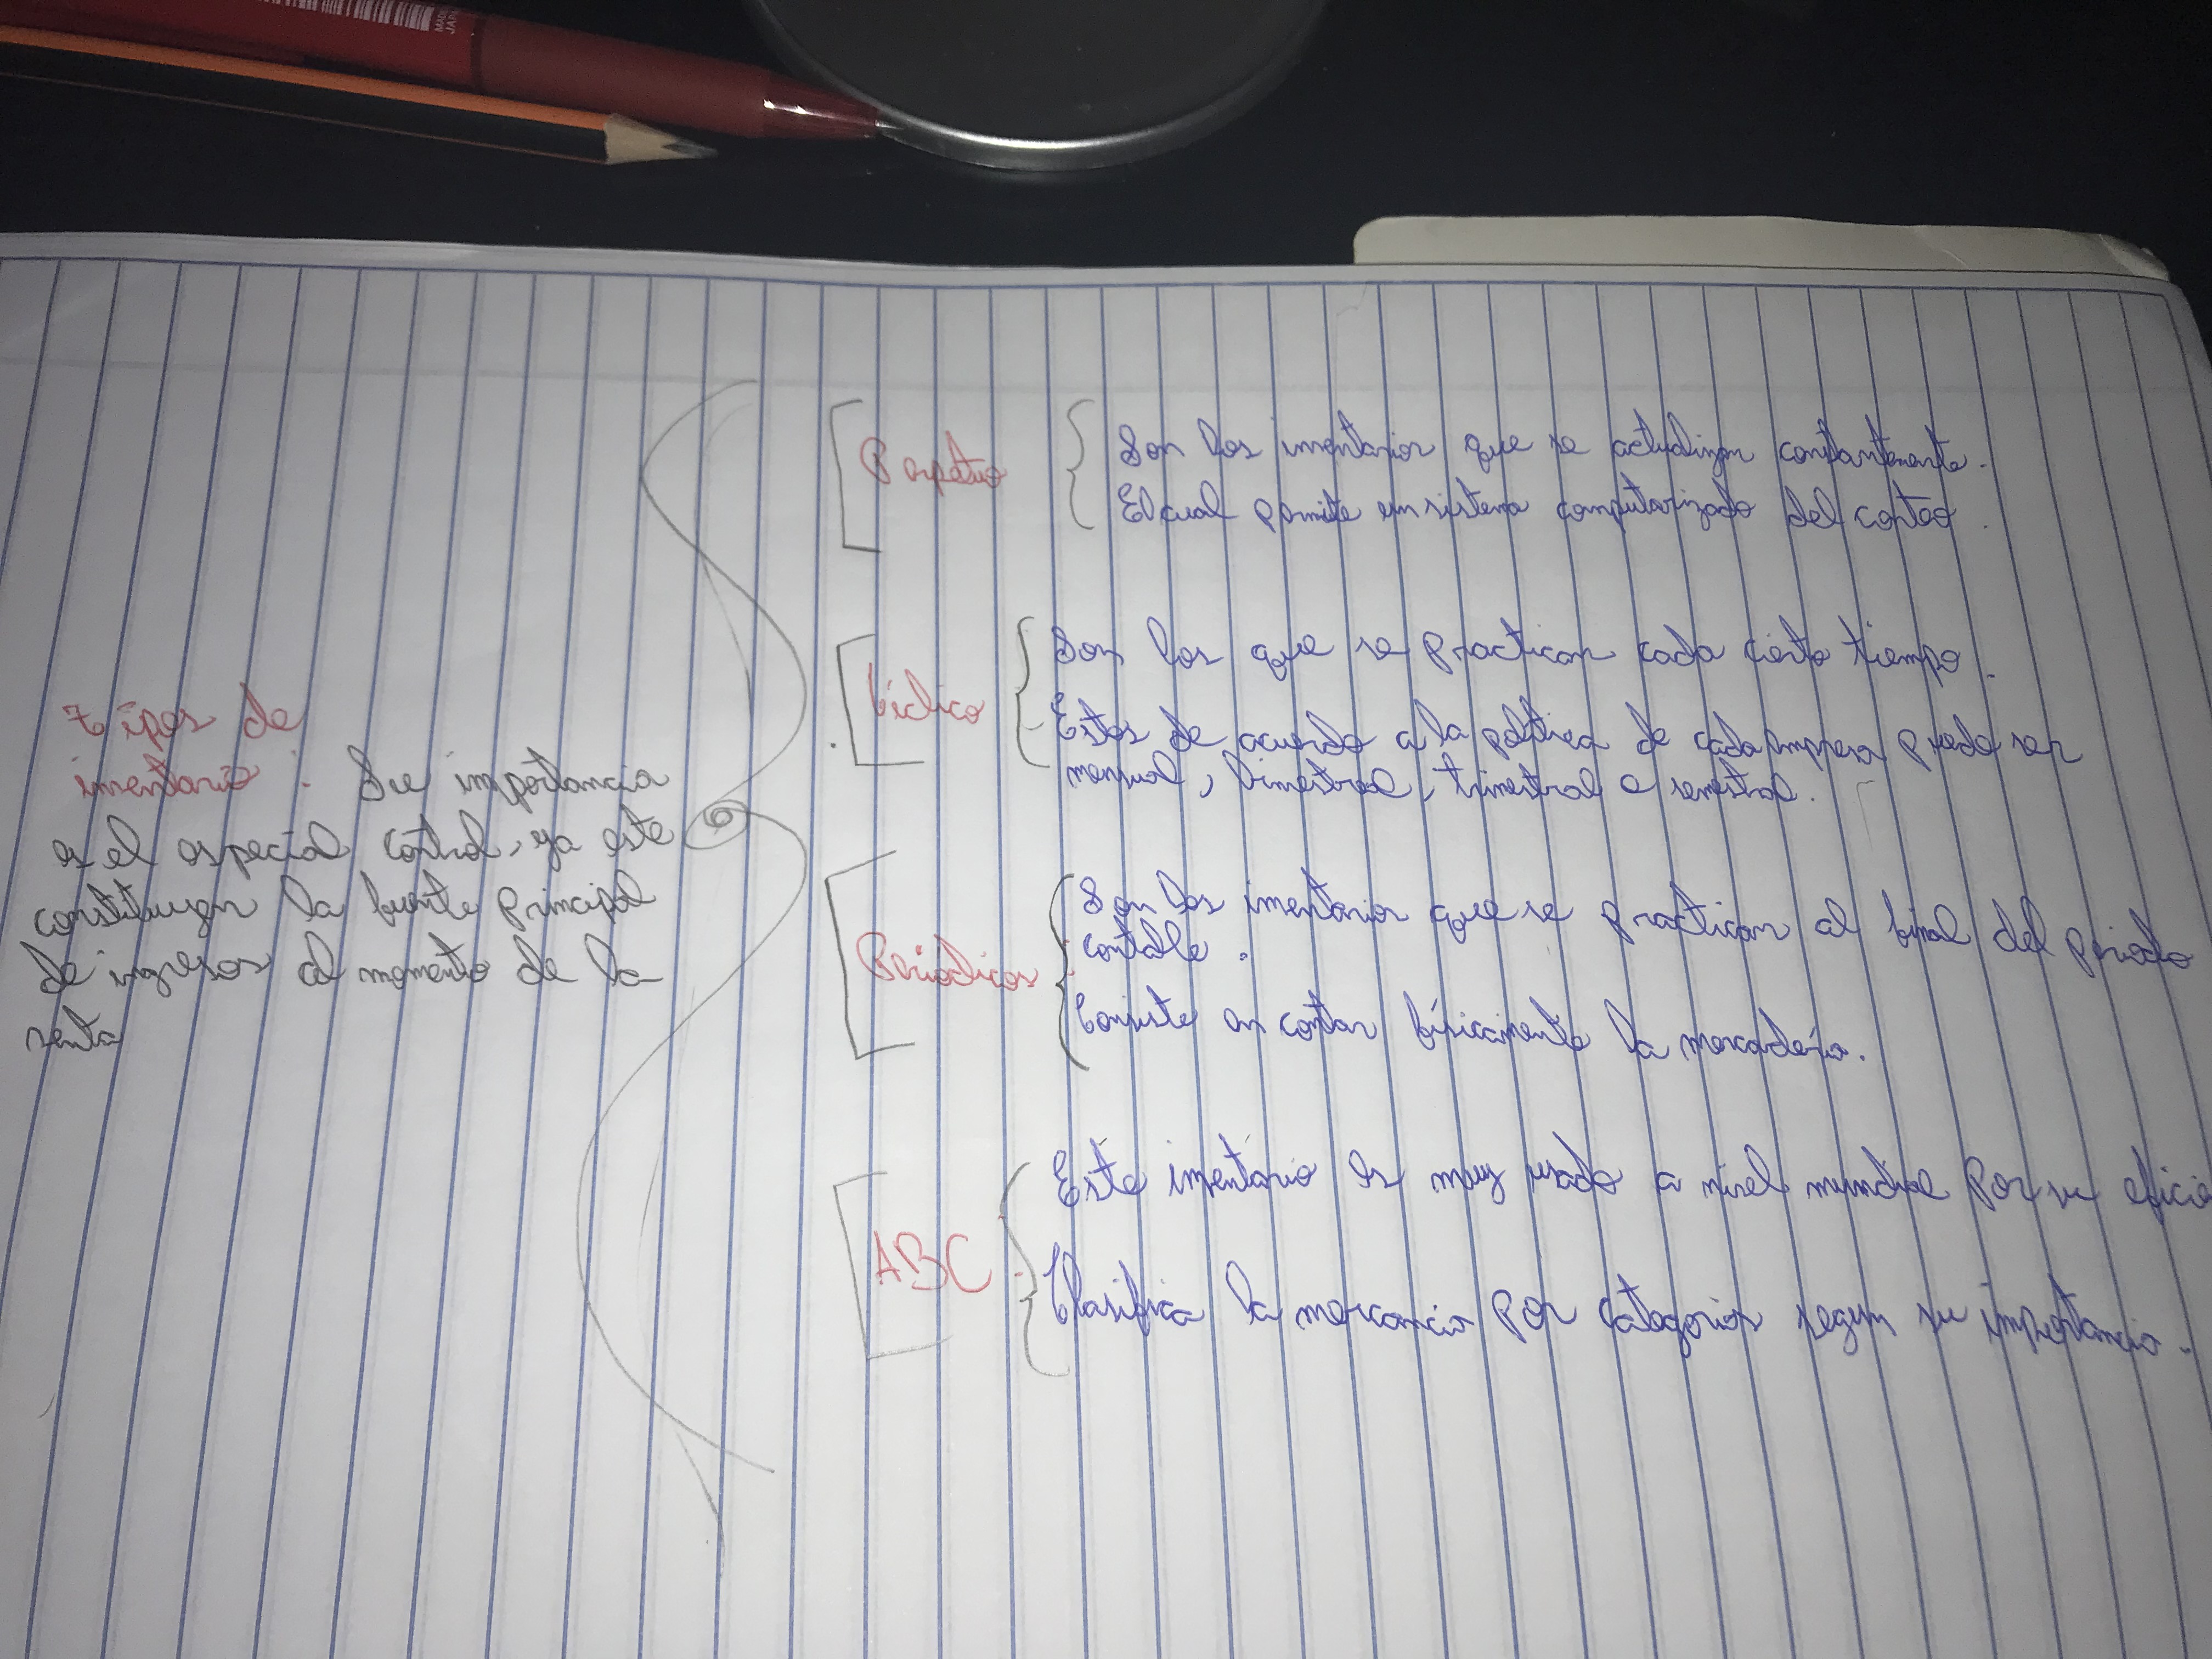 MADE
JAPA
Tipos de
inventario : Su importancia
es el especial control, ya este
constituyen la fuente principal
de ingresos al momento de la
venta
Perpetuo
Son los inventarios que se actualizan constantemente.
El cual permite un sistema computarizado del conteo.
Cíclico
Son los que se practican cada cierto tiempo.
Estos de acuerdo a la política de cada empresa puede ser
mensual, bimestral, trimestral o semestral.
Periódicos
Son los inventarios que se practican al final del periodo
contable.
Consiste en contar físicamente la mercadería.
ABC
Este inventario es muy usado a nivel mundial por su eficie
Clasifica la mercancia por categorias segun su importancia.